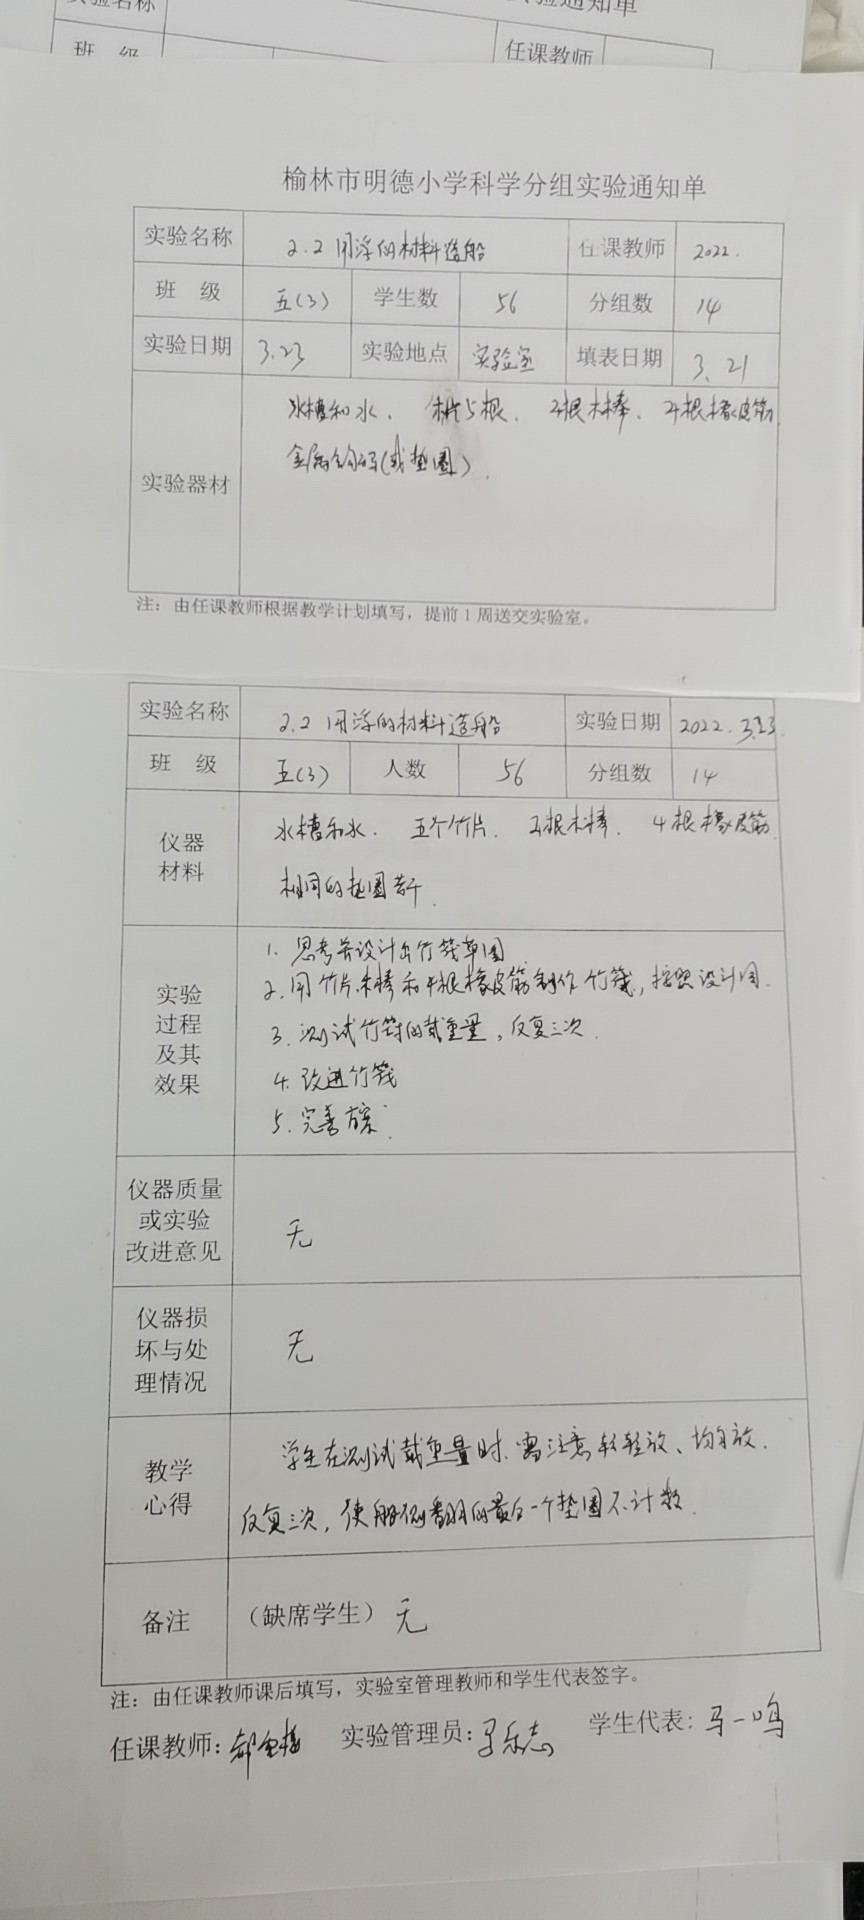 实验名称
实验通知单
班 级
任课教师
榆林市明德小学科学分组实验通知单
实验名称 2.2 用浮的材料造船 任课教师 2022.
班 级 五(3) 学生数 56 分组数 14
实验日期 3.23 实验地点 实验室 填表日期 3.21
实验器材
水槽和水、 5根、 2根木棒、 4根橡皮筋
金属钩码(或垫圈).
注：由任课教师根据教学计划填写，提前1周送交实验室。
实验名称 2.2 用浮的材料造船 实验日期 2022.3.23.
班 级 五(3) 人数 56 分组数 14
仪器
材料
水槽和水. 五个竹片. 2根木棒. 4根橡皮筋
相同的垫圈若干.
实验
过程
及其
效果
1. 思考并设计出竹筏草图
2. 用竹片.木棒和4根橡皮筋制作竹筏, 按照设计图.
3. 测试竹筏的载重量, 反复三次.
4. 改进竹筏
5. 完善方案.
仪器质量
或实验
改进意见
无
仪器损
坏与处
理情况
无
教学
心得
学生在测试载重量时.需注意轻轻放、均匀放.
反复三次, 使船侧翻的最后一个垫圈不计数.
备注 （缺席学生）无
注：由任课教师课后填写，实验室管理教师和学生代表签字。
任课教师: 实验管理员: 学生代表: 马一鸣